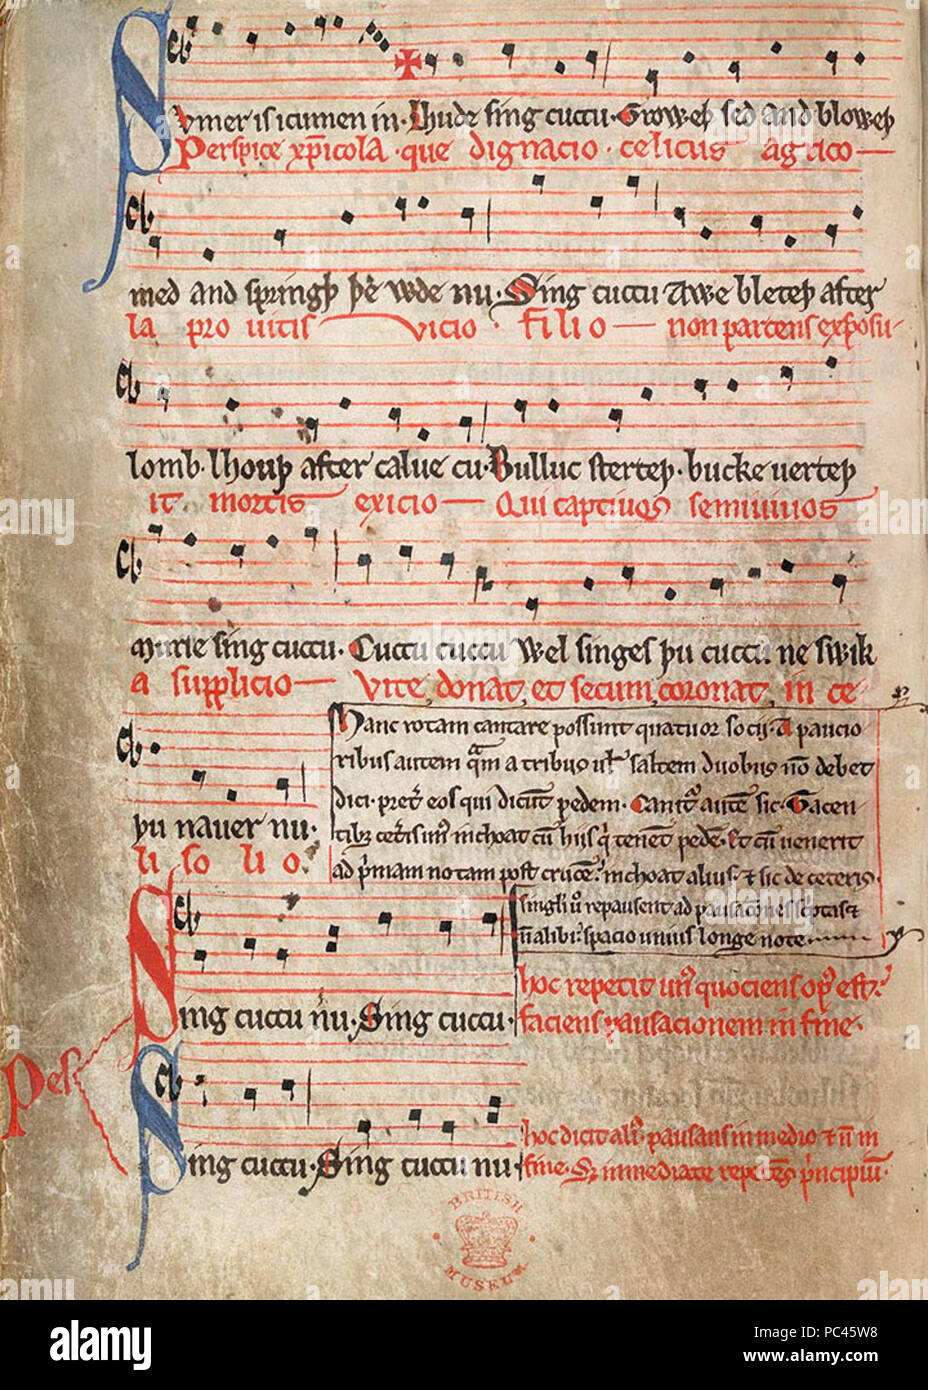 Svmer is icumen in · Lhude sing cuccu · Groweþ sed and bloweþ
Perspice xp̄icola · que dignacio · celicus agrico
med and springþ þe wde nu · Sing cuccu Awe bleteþ after
la pro uitis vicio · filio non parcens exposu
lomb · lhouþ after calue cu · Bulluc sterteþ · bucke uerteþ
it mortis exicio Qui captiuos semiuiuos
murie sing cuccu · Cuccu cuccu Wel singes þu cuccu ne swik
a supplicio Vite donat et secum coronat in ce
þu nauer nu ·
li so li o ·
Hanc rotam cantare possunt quatuor socij · A paucio
ribus autem quam a tribus uel saltem duobus non debet
dici · preter eos qui dicunt pedem · Cantatur autem sic · Tacen
tibus ceteris unus inchoat cum hijs qui tenent pedem · Et cum uenerit
ad primam notam post crucem · inchoat alius · et sic de ceteris ·
singuli uero repausent ad pausaciones scriptas et
non alibi · spacio unius longe note
Sing cuccu nu · Sing cuccu ·
hoc repetit unus quociens opus est ·
faciens pausacionem in fine ·
Pes
Sing cuccu · Sing cuccu nu ·
hoc dicit alius · pausans in medio et non in
fine · Set immediate repetens principium ·
BRITISH MUSEUM
alamy
alamy
Image ID: PC45W8
www.alamy.com